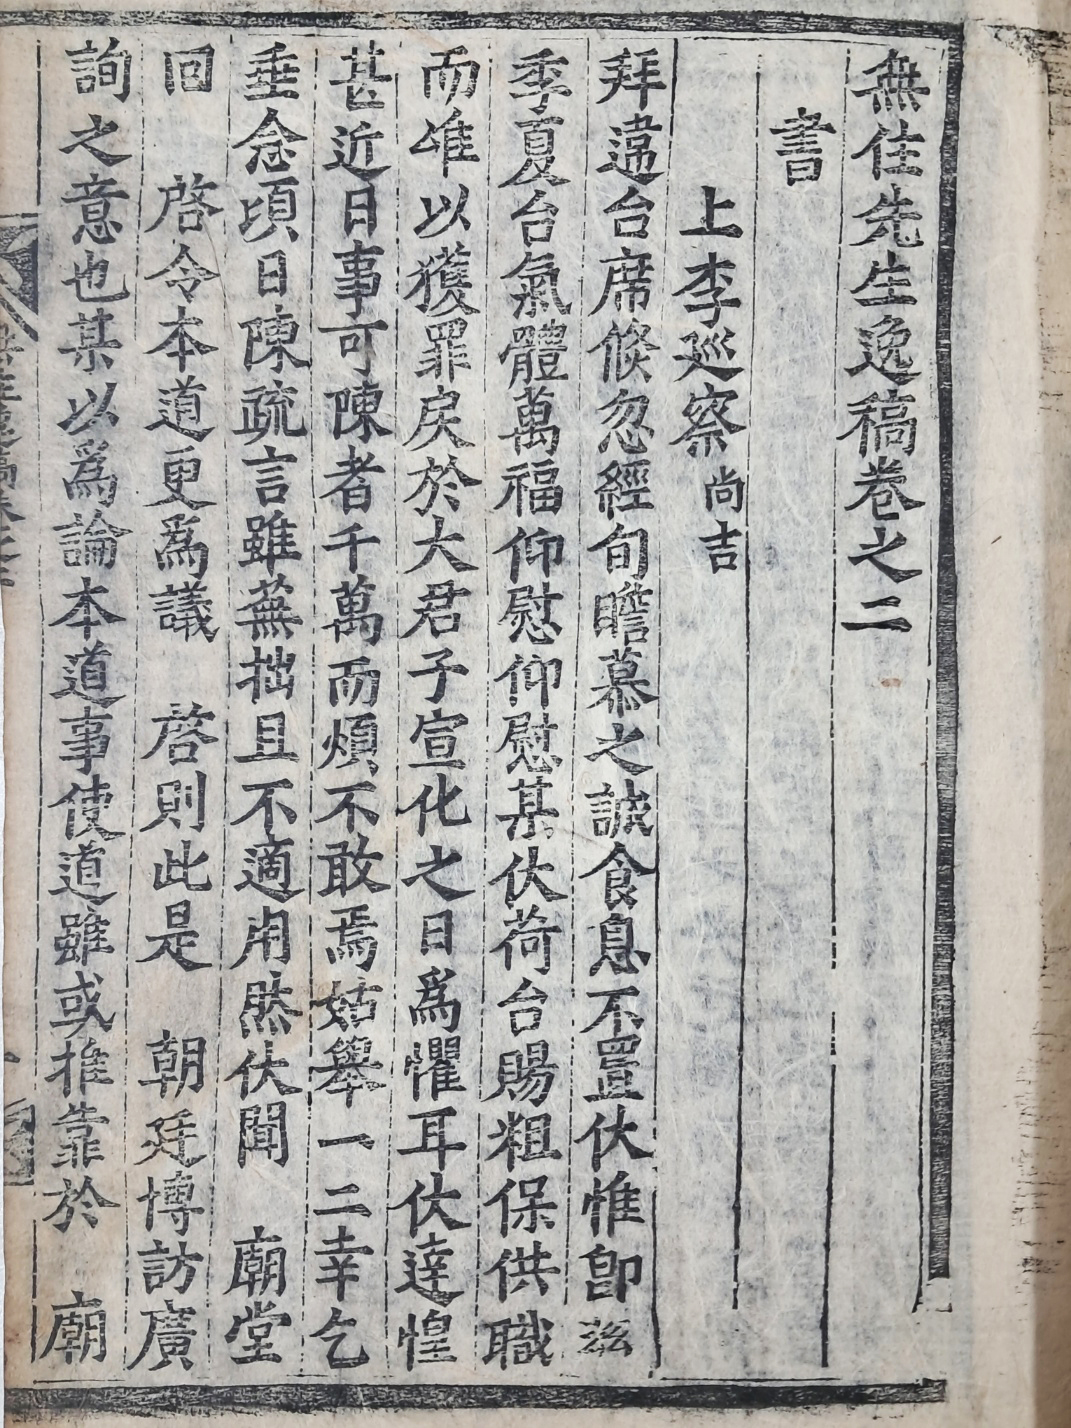 無住先生逸稿卷之二
書
上李巡察尚吉
拜違台席倐忽經旬瞻慕之誠食息不置伏惟卽玆
季夏台氣體萬福仰慰仰慰某伏荷台賜粗保供職
而唯以獲罪戾於大君子宣化之日爲懼耳伏達惶
甚近日事可陳者千萬而煩不敢焉姑擧一二幸乞
垂念頃日陳疏言雖蕪拙且不適用然伏聞 廟堂
回 啓令本道更爲議 啓則此是 朝廷博訪廣
詢之意也某以爲論本道事使道雖或推靠於 廟